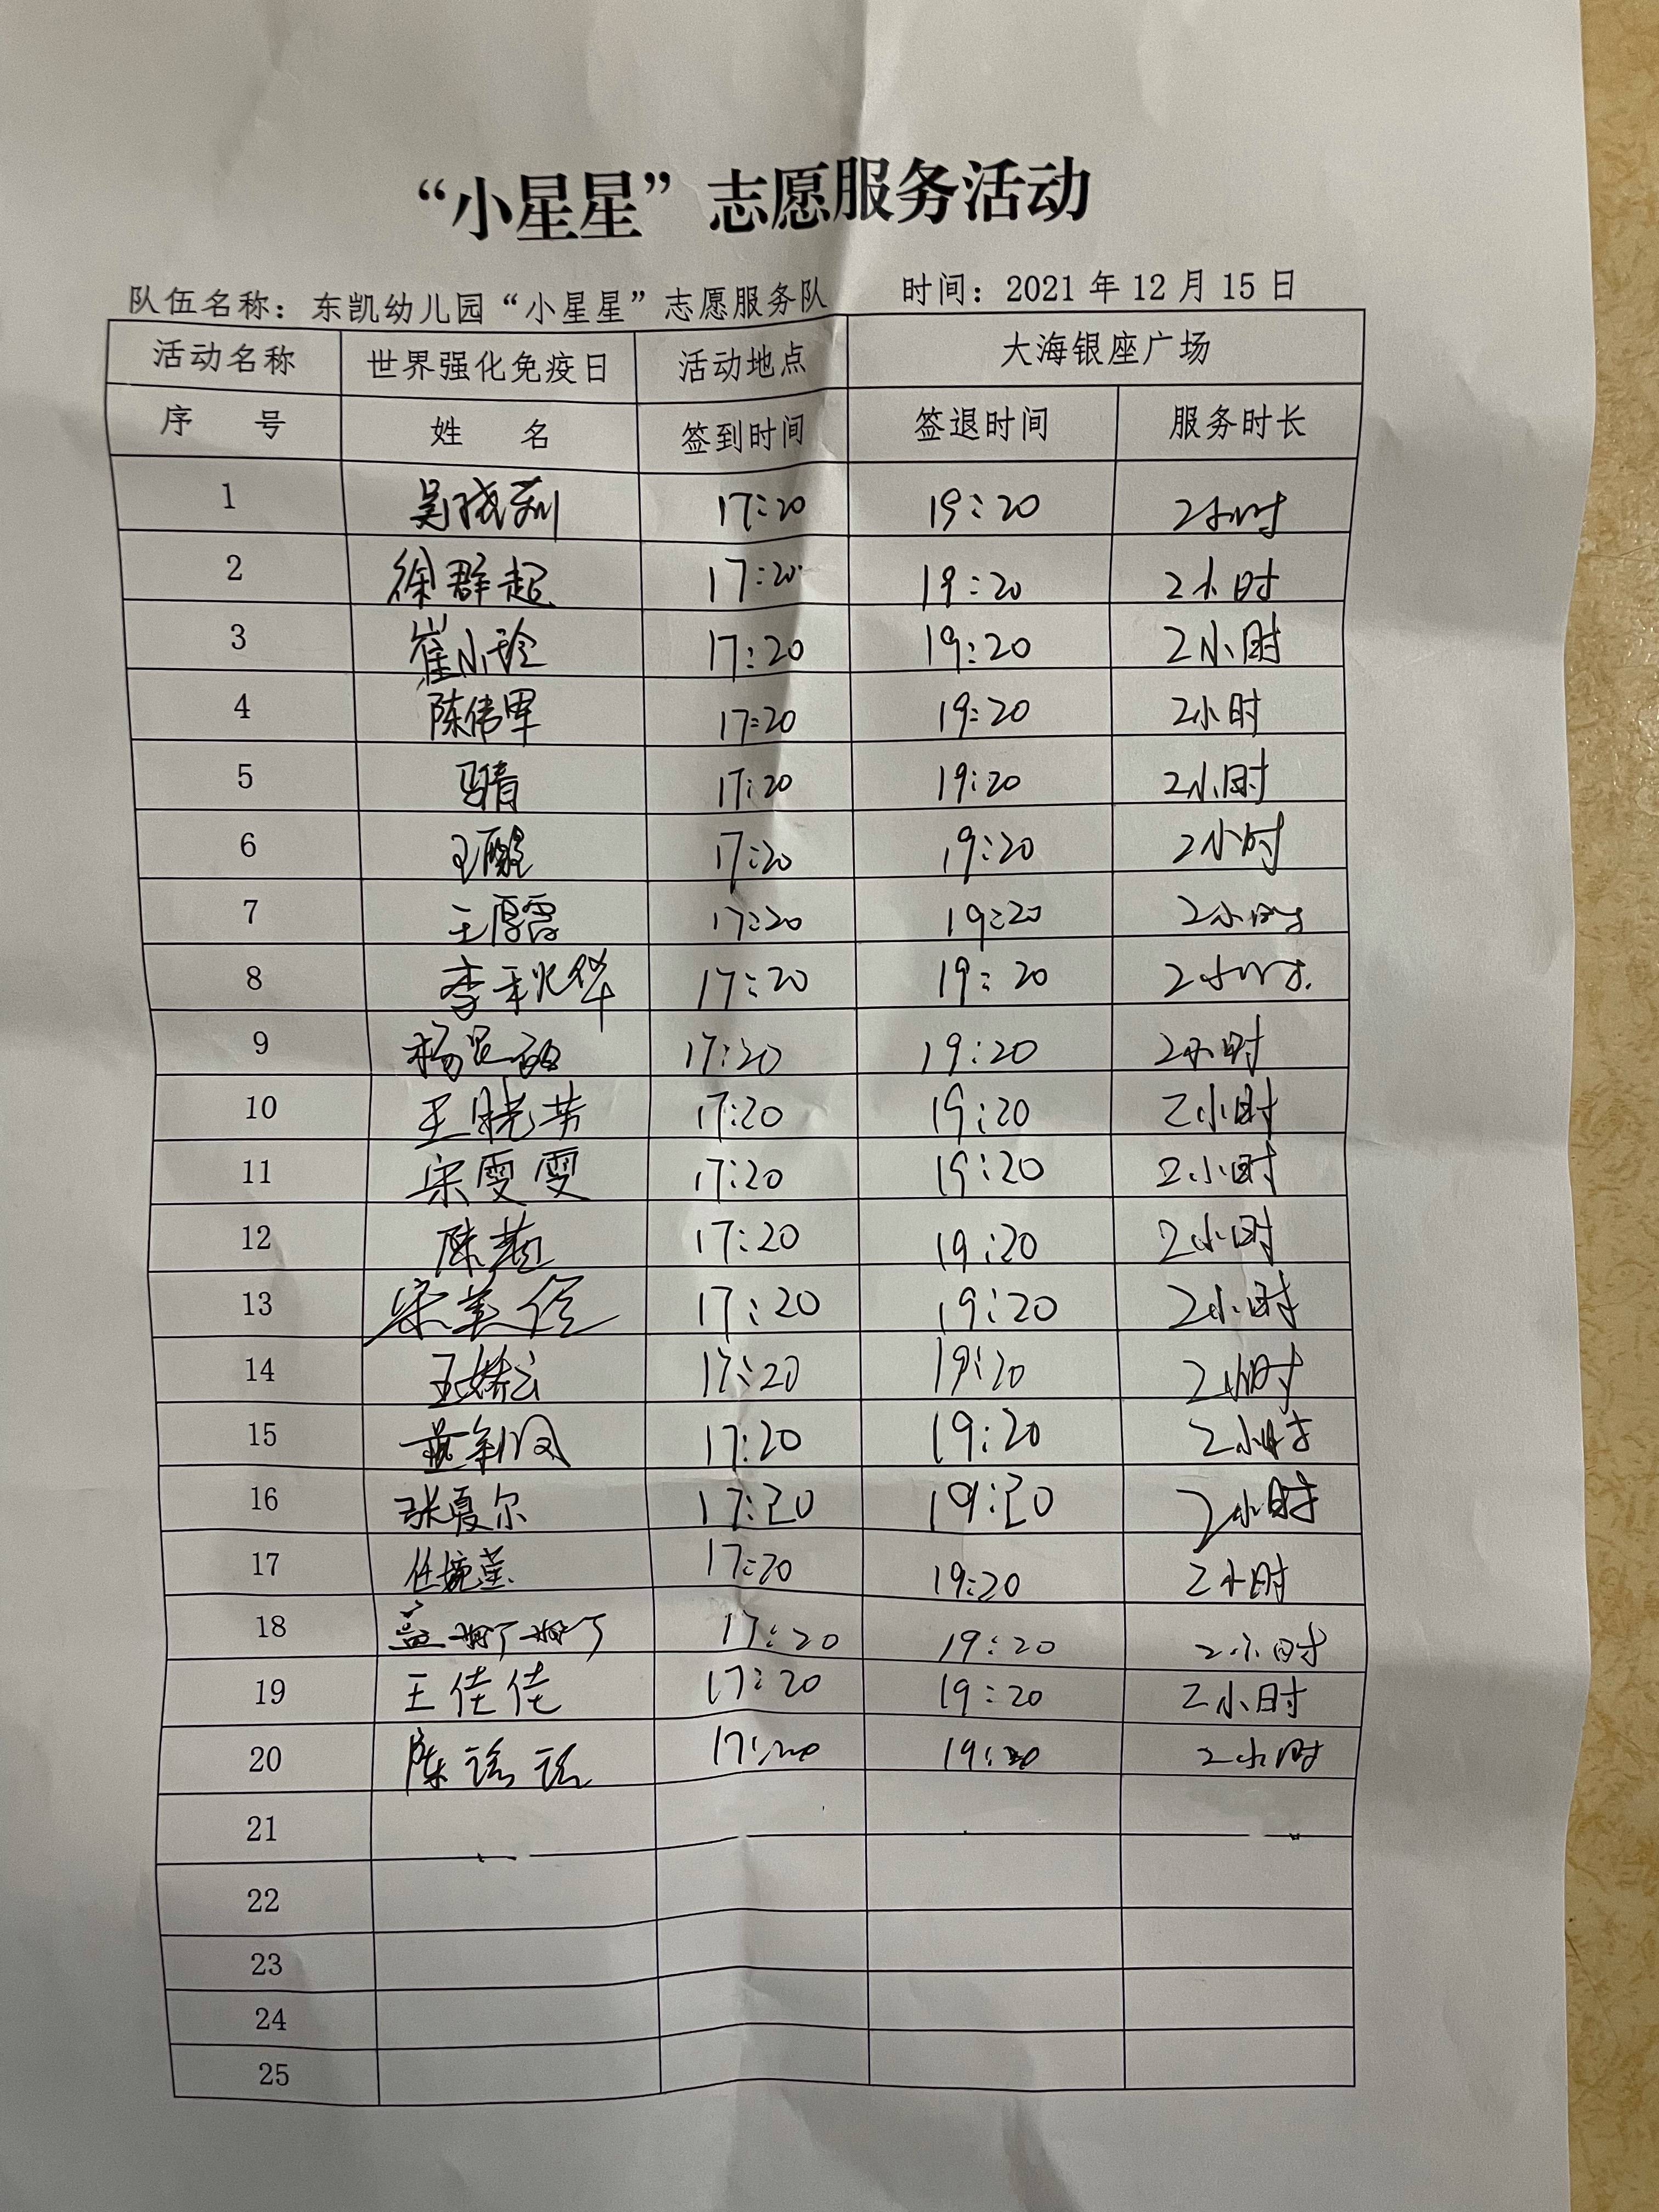 “小星星”志愿服务活动
队伍名称：东凯幼儿园“小星星”志愿服务队 时间：2021年12月15日
活动名称 世界强化免疫日 活动地点 大海银座广场
序 号 姓 名 签到时间 签退时间 服务时长
1 吴 17:20 19:20 2小时
2 徐群起 17:20 19:20 2小时
3 崔小玲 17:20 19:20 2小时
4 陈伟军 17:20 19:20 2小时
5 马青 17:20 19:20 2小时
6 王 17:20 19:20 2小时
7 王 17:20 19:20 2小时
8 李秋华 17:20 19:20 2小时
9 杨 17:20 19:20 2小时
10 王晓芳 17:20 19:20 2小时
11 宋雯雯 17:20 19:20 2小时
12 陈 17:20 19:20 2小时
13 宋美 17:20 19:20 2小时
14 王 17:20 19:20 2小时
15 17:20 19:20 2小时
16 张夏尔 17:20 19:20 2小时
17 任婉莹 17:20 19:20 2小时
18 盖 17:20 19:20 2小时
19 王佳佳 17:20 19:20 2小时
20 陈 17:20 19:20 2小时
21
22
23
24
25